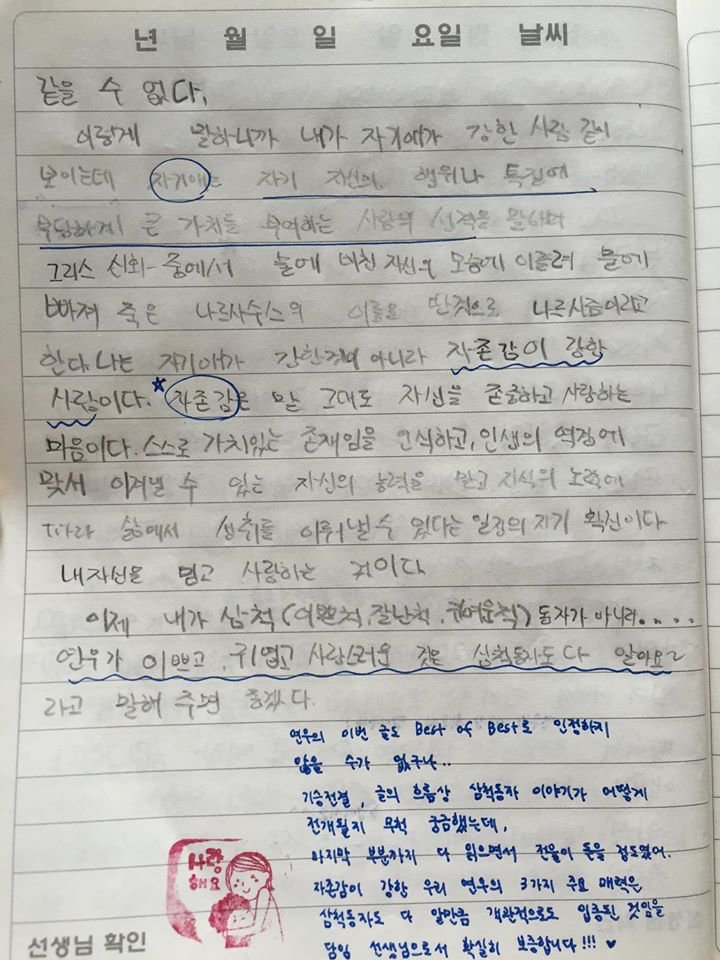 년 월 일 요일 날씨
같을 수 없다.
이렇게 말하니까 내가 자기애가 강한 사람 같이
보이는데 자기애는 자기 자신의 행위나 특질에
부당하게 큰 가치를 부여하는 사람의 성격을 말하며
그리스 신화 중에서 눈에 비친 자신의 모습에 이끌려 물에
빠져 죽은 나르사수스의 이름을 딴것으로 나르시즘이라고
한다. 나는 자기애가 강한것이 아니라 자존감이 강한
사람이다. *자존감은 말 그대로 자신을 존중하고 사랑하는
마음이다. 스스로 가치있는 존재임을 인식하고, 인생의 역경에
맞서 이겨낼 수 있는 자신의 능력을 믿고 자신의 노력에
따라 삶에서 성취를 이뤄낼 수 있다는 일종의 자기 확신이다
내자신을 믿고 사랑하는 것이다
이제 내가 삼척(이쁜척, 잘난척, 귀여운척) 동자가 아니라.....
연우가 이쁘고, 귀엽고 사랑스러운 것은 삼척동자도 다 알아요~
라고 말해 주면 좋겠다.
연우의 이번 글도 Best of Best로 인정하지
않을 수가 없구나..
기승전결, 글의 흐름상 삼척동자 이야기가 어떻게
전개될지 무척 궁금했는데,
마지막 부분까지 다 읽으면서 전율이 돋을 정도였어.
자존감이 강한 우리 연우의 3가지 주요 매력은
삼척동자도 다 알만큼 객관적으로도 입증된 것임을
담임 선생님으로서 확실히 보증합니다!!! ♥
사랑
해요
선생님 확인